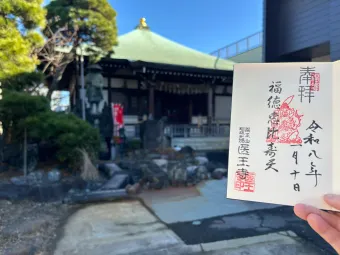 奉拝
令和八年
一月十日
福徳恵比寿天
医王寺